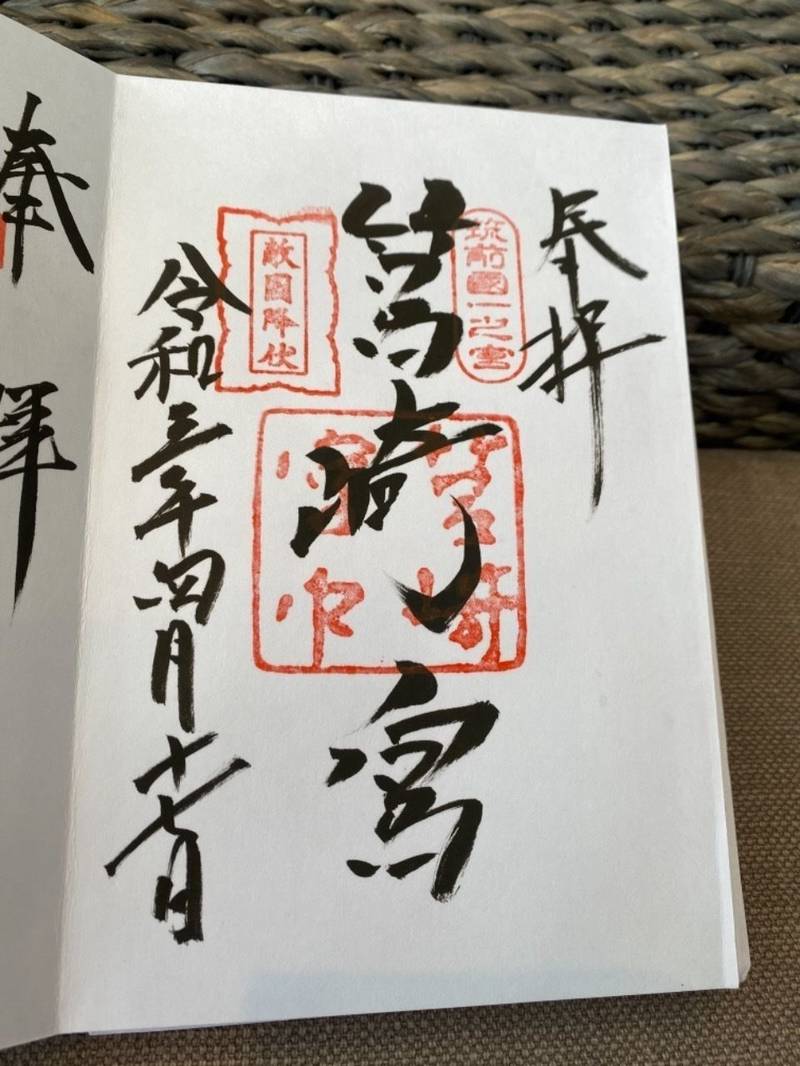 奉拝
筑前國一之宮
筥崎宮
筥崎宮印
敵国降伏
令和三年四月十七日
奉拝